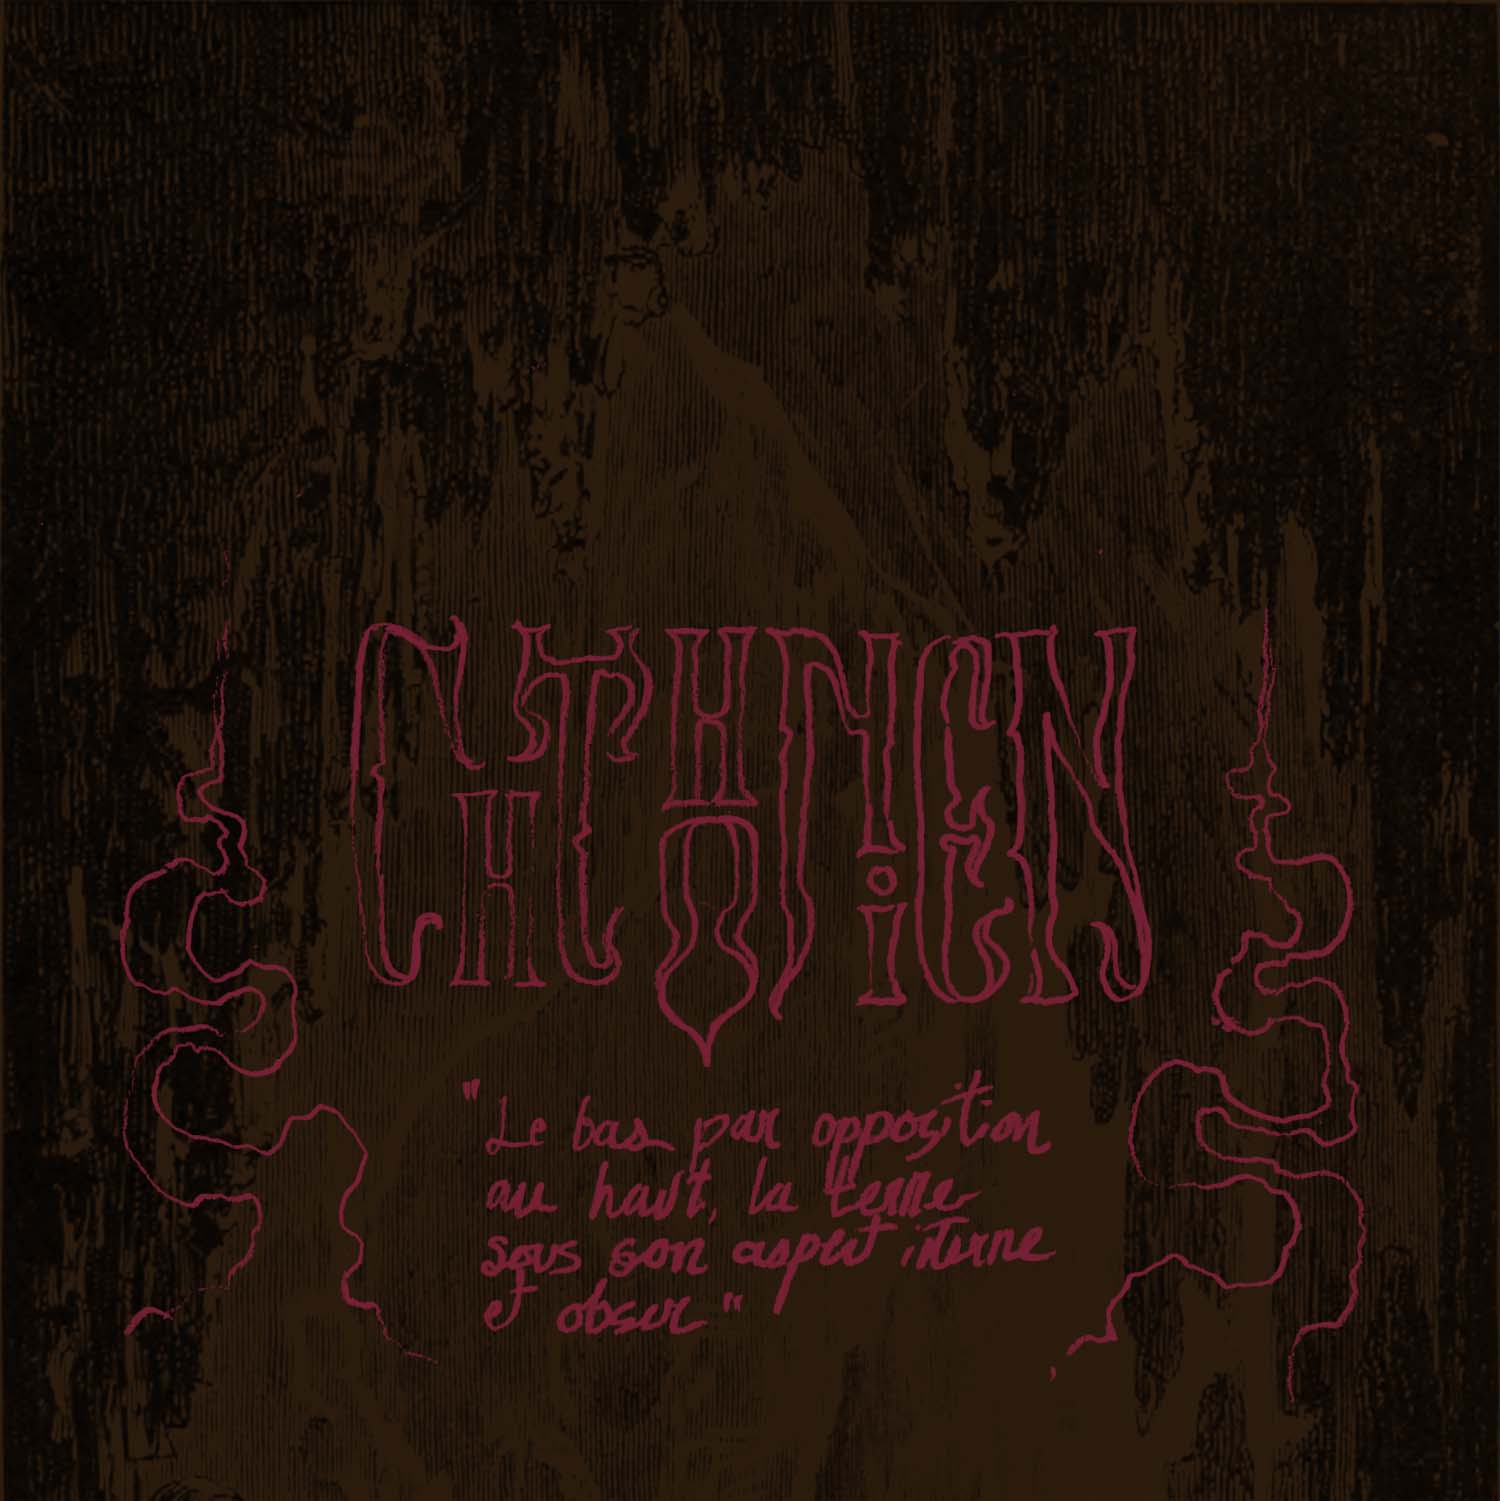 CHTHONiEN
"Le bas par opposition
au haut, la terre
sous son aspect interne
et obscur"